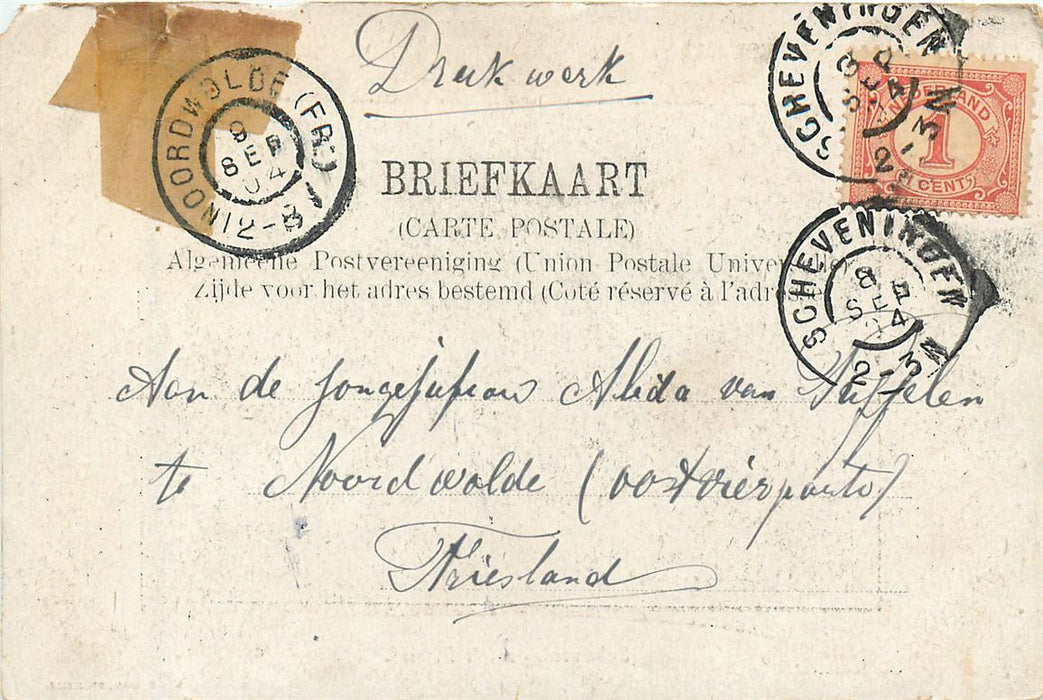 Drukwerk
NOORDWOLDE (FR:)
9
SEP
04
12-8
SCHEVENINGEN
8 SEP
04
2-3N
NEDERLAND
1
CENT
BRIEFKAART
(CARTE POSTALE)
Algemeene Postvereeniging (Union Postale Universelle)
Zijde voor het adres bestemd (Coté réservé à l'adresse
SCHEVENINGEN
8 SEP
04
2-3N
Aan de jongejufrou Alida van Puffelen
te Noordwolde (oostvierparto)
Friesland